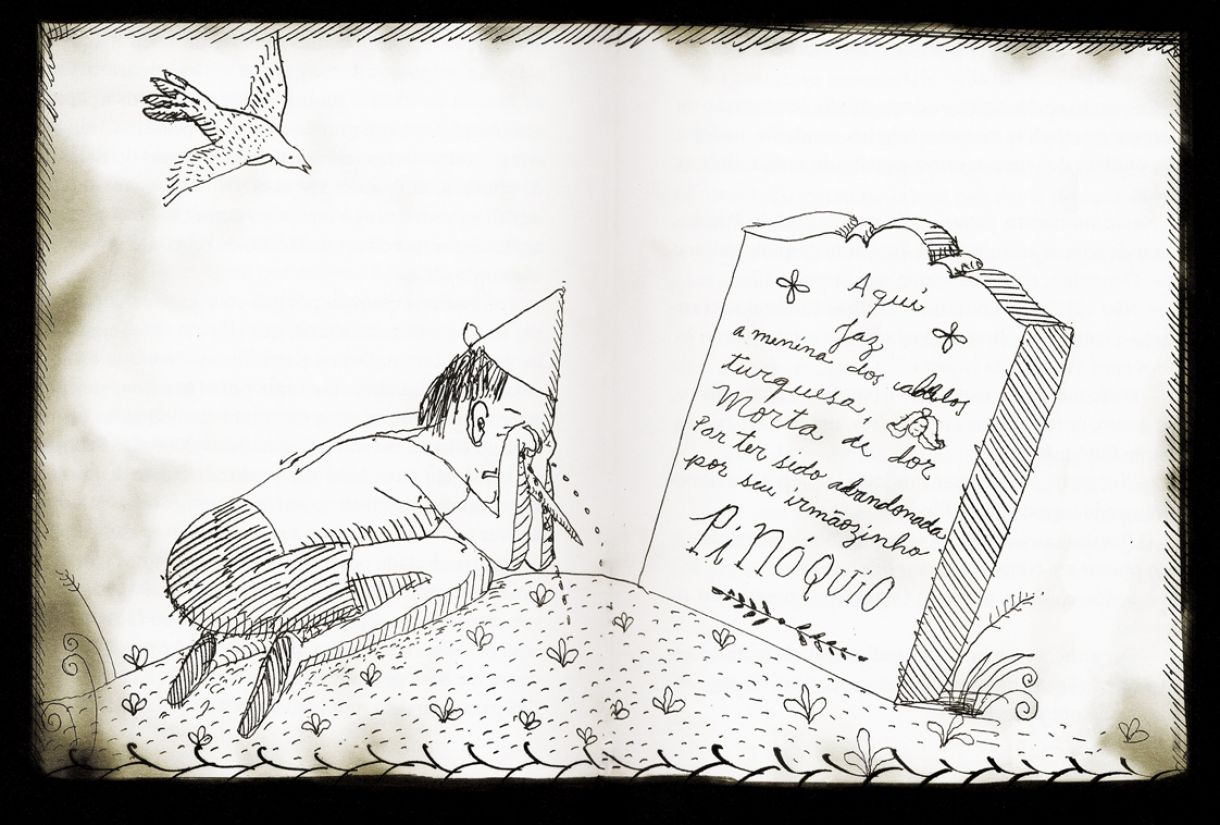 Aqui
Jaz
a menina dos cabelos
turquesa,
Morta de dor
Por ter sido abandonada
por seu irmãozinho
PiNÓQUIO